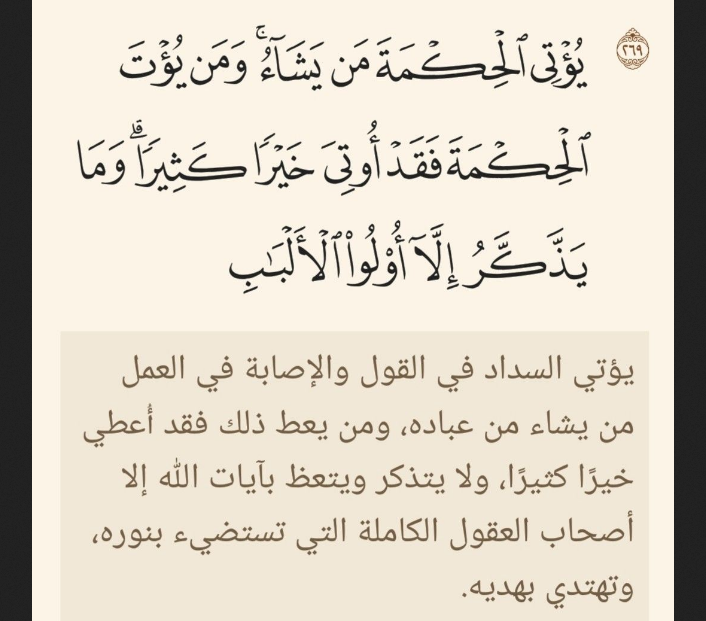 ٢٦٩
يُؤْتِى ٱلْحِكْمَةَ مَن يَشَآءُ ۚ وَمَن يُؤْتَ
ٱلْحِكْمَةَ فَقَدْ أُوتِىَ خَيْرًا كَثِيرًا ۗ وَمَا
يَذَّكَّرُ إِلَّآ أُو۟لُوا۟ ٱلْأَلْبَـٰبِ
يؤتي السداد في القول والإصابة في العمل
من يشاء من عباده، ومن يعط ذلك فقد أعطي
خيرًا كثيرًا، ولا يتذكر ويتعظ بآيات الله إلا
أصحاب العقول الكاملة التي تستضيء بنوره،
وتهتدي بهديه.